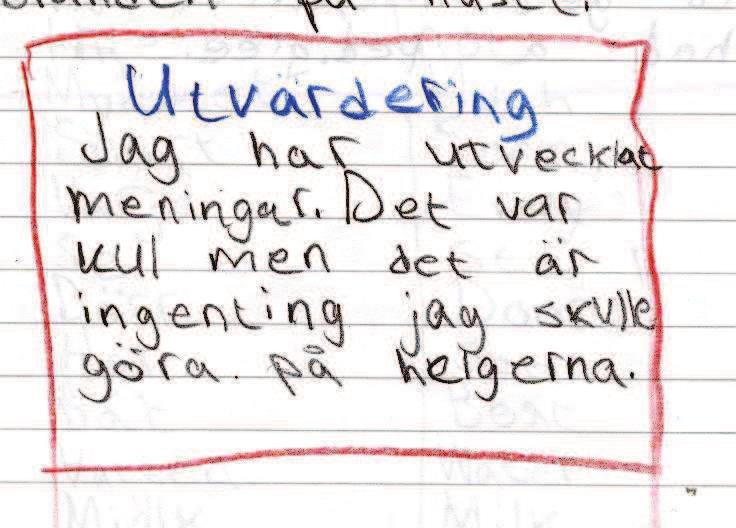 på huset.
Utvärdering
Jag har utvecklat
meningar. Det var
kul men det är
ingenting jag skulle
göra på helgerna.